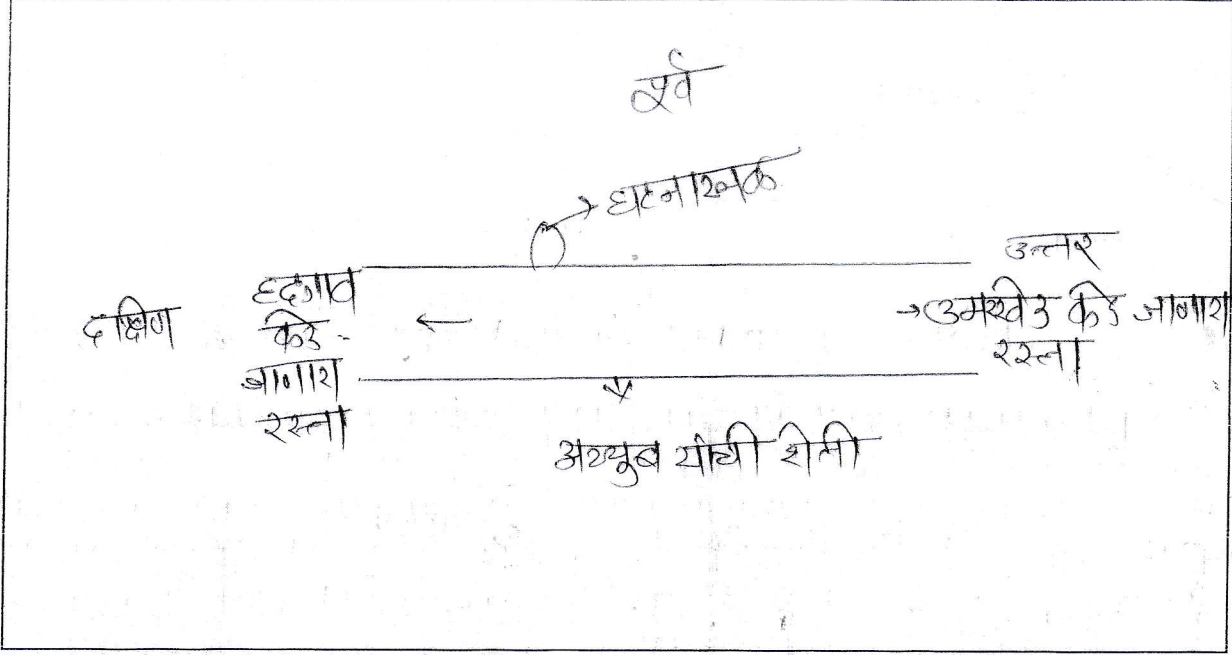 पूर्व
घटनास्थळ
उत्तर
दक्षिण
हदगाव
कडे
जाणारा
रस्ता
उमरखेड कडे जाणारा
रस्ता
अय्युब यांची शेती